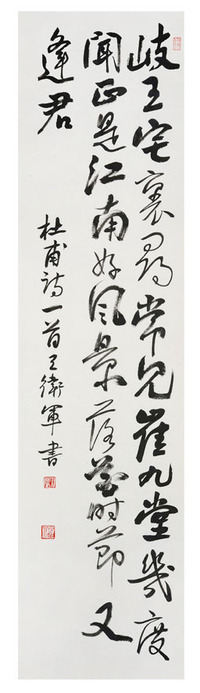 岐王宅裏尋常見崔九堂幾度
聞正是江南好風景落花時節又
逢君
杜甫詩一首王衛軍書